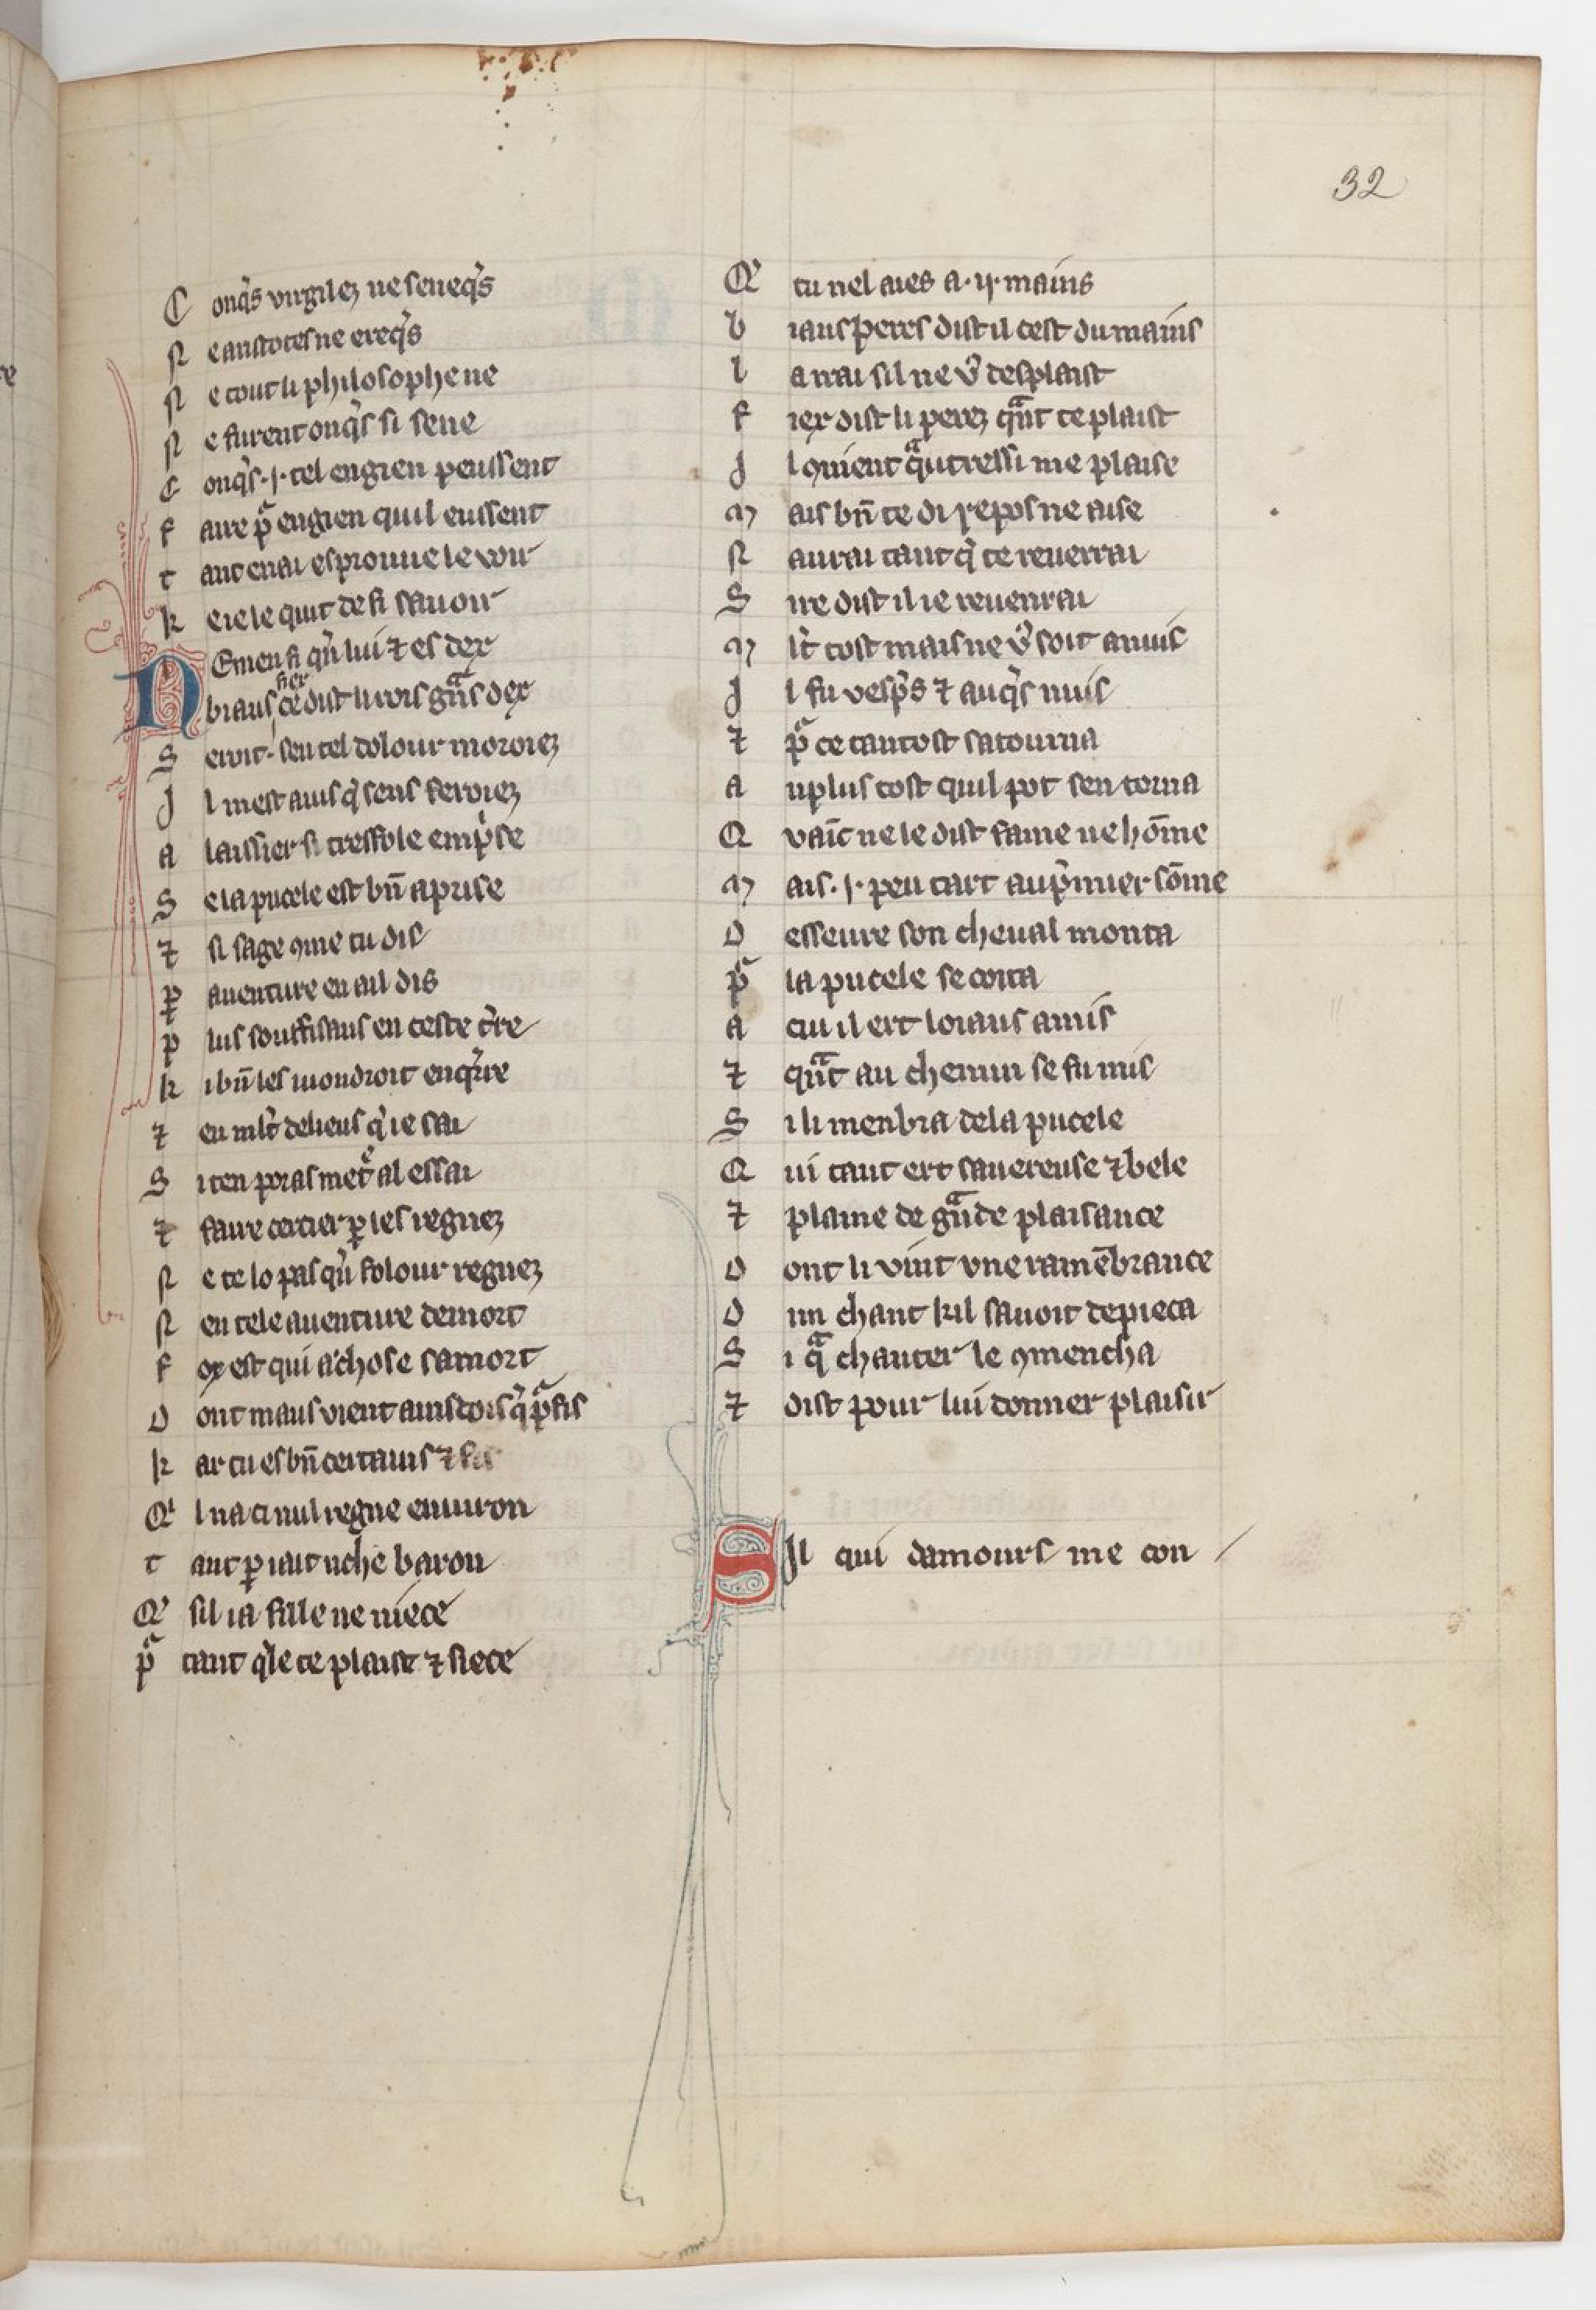 32
C onq̃s virgilez ne seneq̃s
N e aristotes ne ereq̃s
N e tout li philosophe ne
N e furent onq̃s si sene
C onq̃s .j. tel engien peussent
F aire pͣ engien quil eussent
T ant en ai esprouue le voir
K e ie le quit de fi sauoir
D Emen fi qͥl lui ⁊ es dex
biaus fiex ce dist li rois gͣns dex
S eroit sen tel dolour moroiez
J l mest auis q̃ sens feroiez
A laissier si tresfole emp̃se
S e la pucele est bn̄ aprise
⁊ si sage ꝯme tu dis
ꝑ auenture en a il dis
P lus souffisans en ceste t̃re
K i bn̄ les iuondroit enq̃rre
⁊ en mlt̃ de lieus q̃ ie sai
S i ten poras metͤ al essai
⁊ faire cerkier ꝑ les regnez
N e te lo pas qͥ folour regnez
N en tele auenture de mort
F ox est qui a chose samort
D ont maus vient ains tous q̃ pͣfis
K ar tu es bn̄ certains ⁊ fis
Qͥ l na ci nul regne enuiron
T ant ꝑ iait riche baron
Qͥ sil i a fille ne niece
Pͣ tant q̃le te plaise ⁊ siece
Qͤ tu nel aies a .ij. mains
B iaus peres dist il cest du mains
L arrai sil ne vͦ desplaist
F iex dist li perez qͣnt te plaist
J l ꝯuient qͣutressi me plaise
M ais bn̄ te di repos ne aise
N aurai tant q̃ te reuerrai
S ire dist il ie reuenrai
M lt̃ tost mais ne vͦ soit anuis
J l fu vesp̃s ⁊ auq̃s nuis
⁊ pͣ ce tantost satourna
A u plus tost quil pot sen torna
Q vainc ne le dist fame ne hõme
M ais .j. peu tart au p̃mier sõme
D esseure son cheual monta
Pͣ la pucele se conta
A cui il ert loiaus amis
⁊ qͣnt au chemin se fu mis
S i li menbra de la pucele
Q ui tant ert sauereuse ⁊ bele
⁊ plaine de gͣnde plaisance
D ont li vint vne ramẽbrance
D un chant kil sauoit de pieca
S i qͣ chanter le ꝯmencha
⁊ dist pour lui donner plaisir
SIl qui damours me con